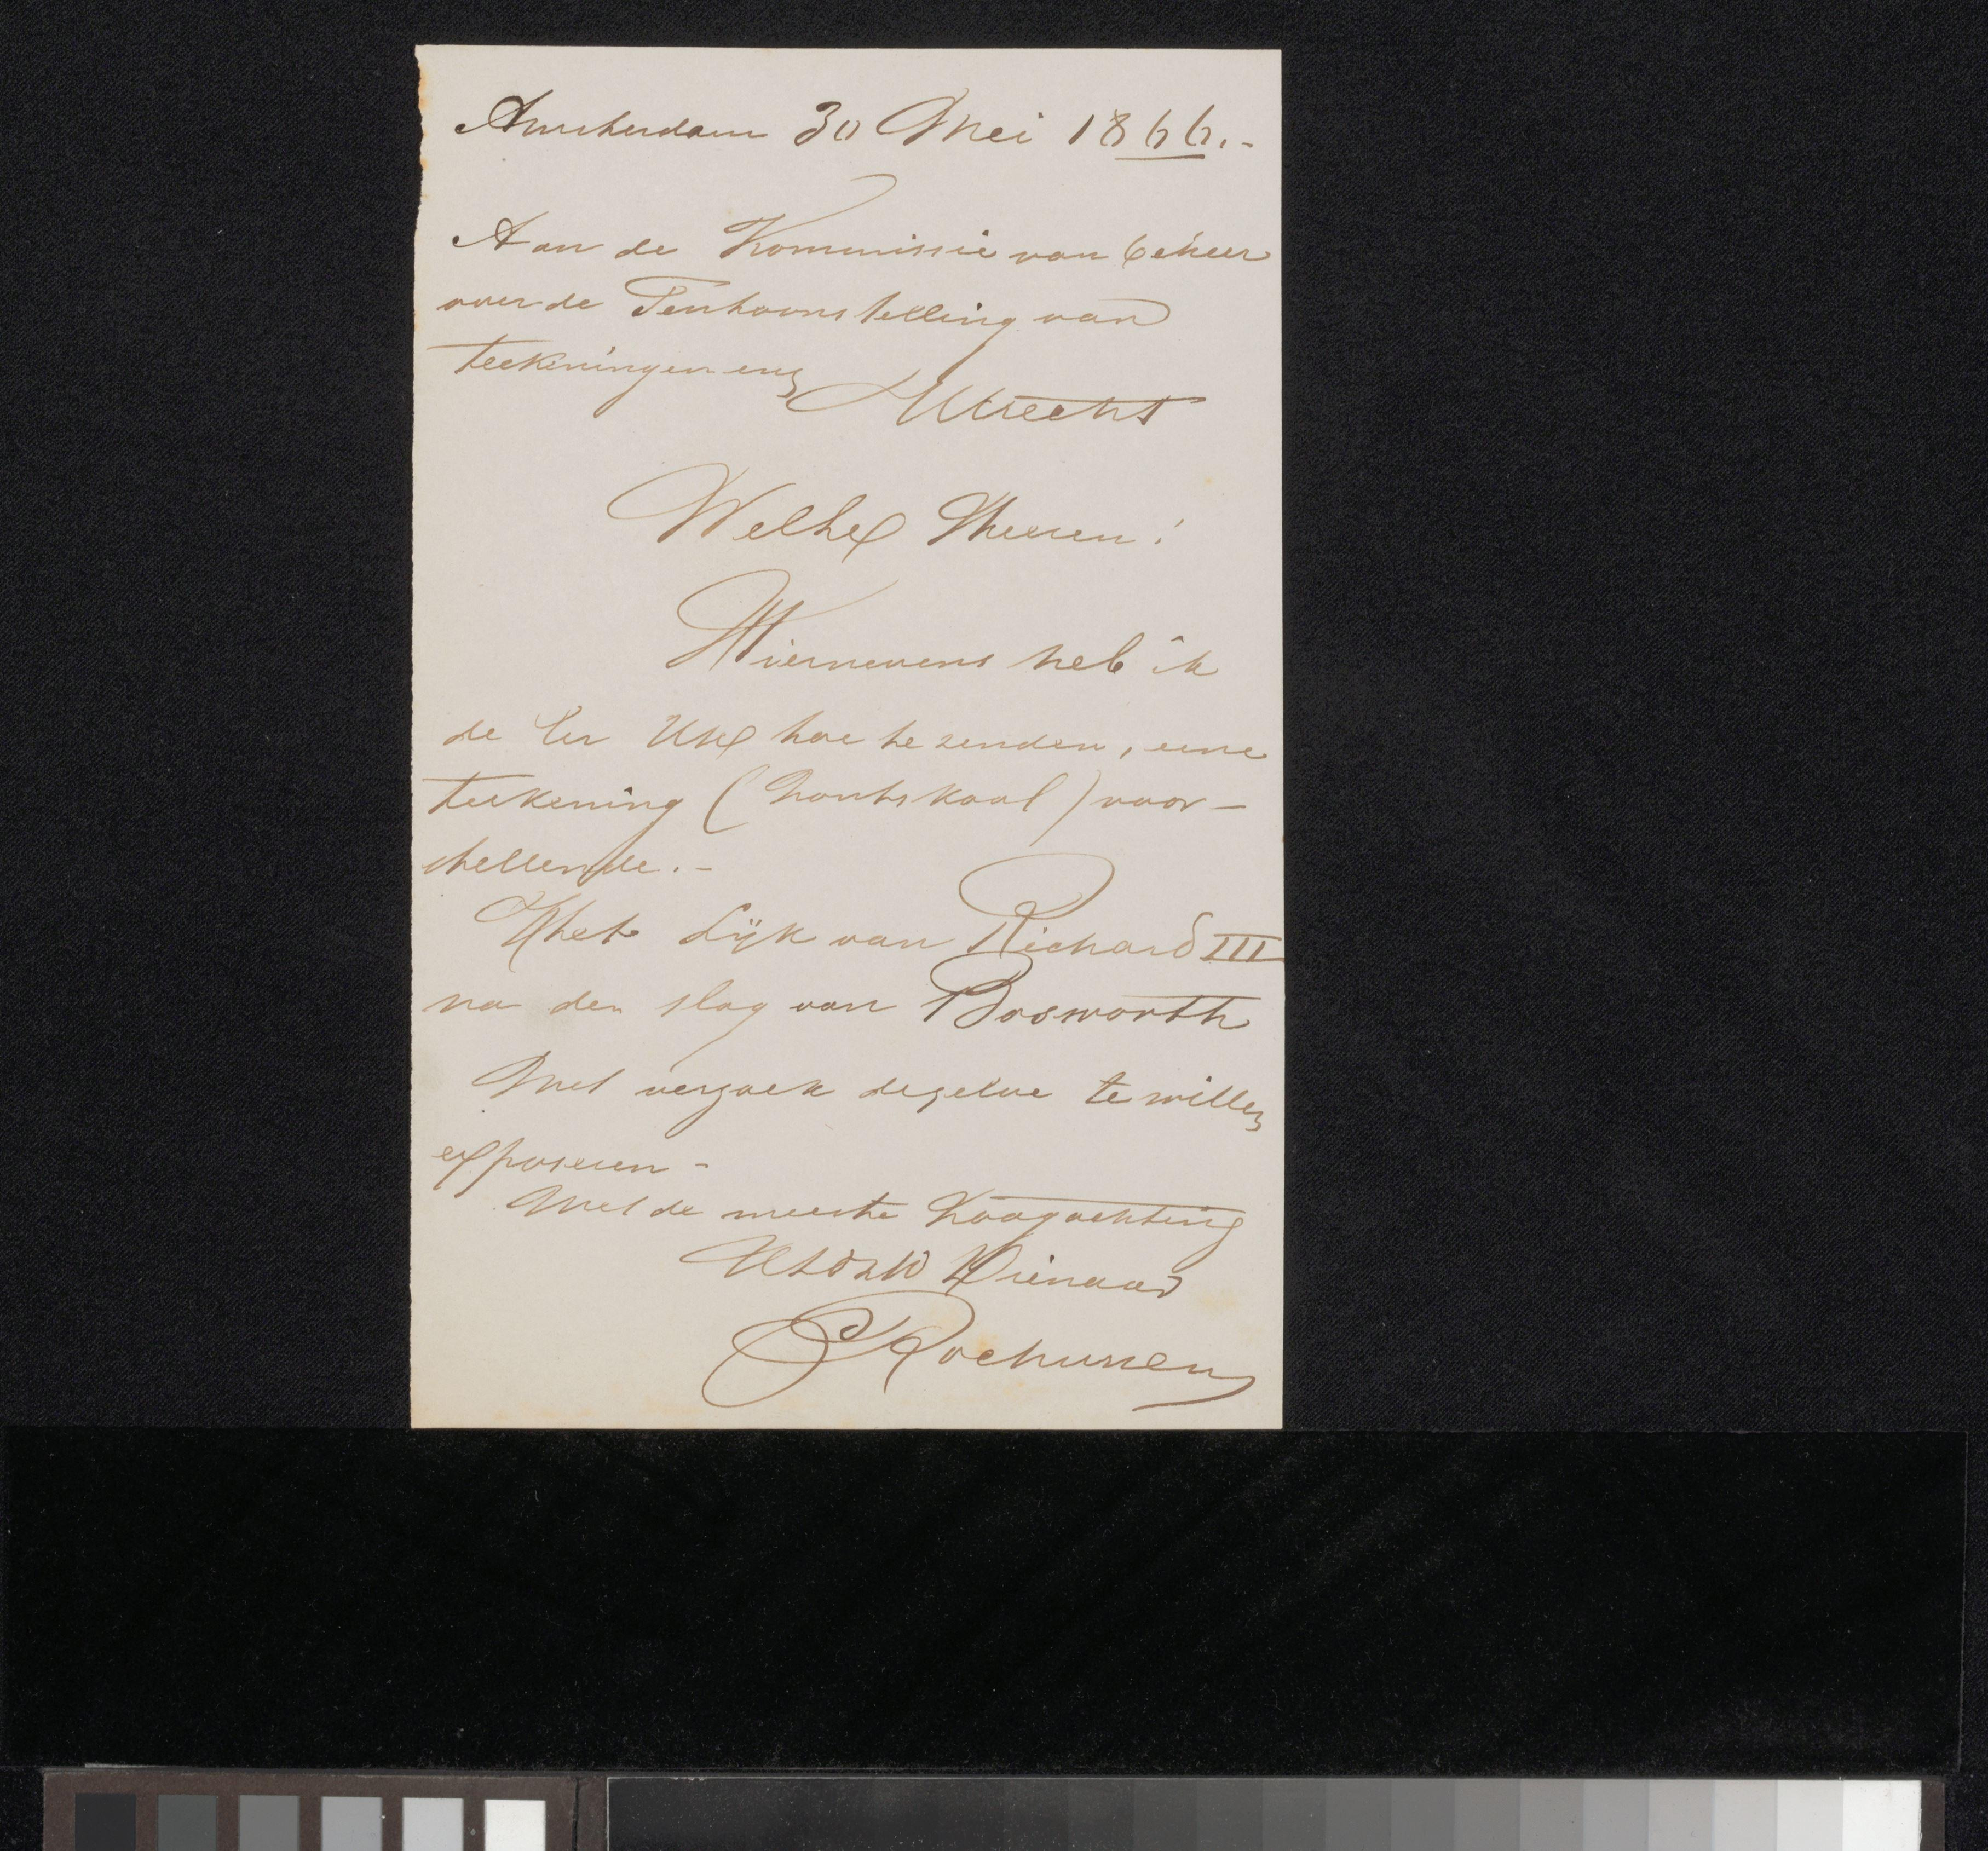 Amsterdam 30 Mei 1866.-
Aan de Kommissie van beheer
over de Tentoonstelling van
teekeningen enz Utrecht
WelEd Heeren!
Hiernevens heb ik
de Eer UEd toe te zenden, eene
teekening (houtskool) voor-
stellende.-
Het Lijk van Richard III
na den slag van Bosworth
Met verzoek dezelve te willen
exposeren-
Met de meeste hoogachting
Dienaar
C Rochussen